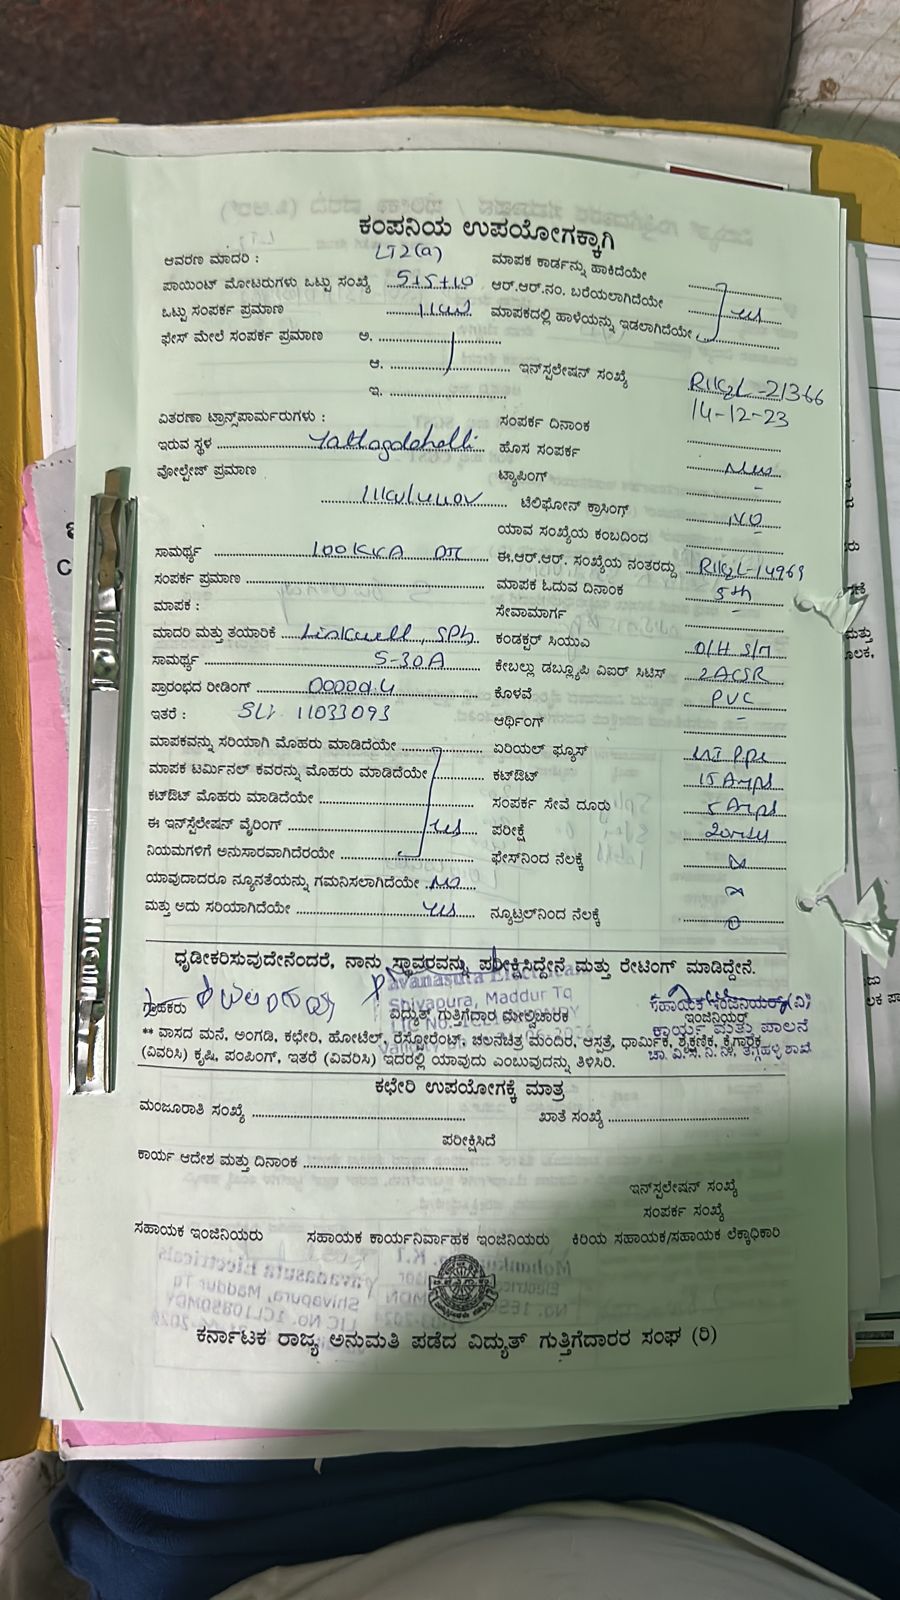 ಕಂಪನಿಯ ಉಪಯೋಗಕ್ಕಾಗಿ
ಆವರಣ ಮಾದರಿ : LT2(a)
ಪಾಯಿಂಟ್ ಮೋಟರುಗಳು ಒಟ್ಟು ಸಂಖ್ಯೆ 5+5+10
ಒಟ್ಟು ಸಂಪರ್ಕ ಪ್ರಮಾಣ 1kw
ಫೇಸ್ ಮೇಲೆ ಸಂಪರ್ಕ ಪ್ರಮಾಣ ಅ.
ಆ.
ಇ.
ವಿತರಣಾ ಟ್ರಾನ್ಸ್‌ಪಾರ್ಮರುಗಳು :
ಇರುವ ಸ್ಥಳ
ವೋಲ್ಟೇಜ್ ಪ್ರಮಾಣ
ಸಾಮರ್ಥ್ಯ 100KVA
ಸಂಪರ್ಕ ಪ್ರಮಾಣ
ಮಾಪಕ :
ಮಾದರಿ ಮತ್ತು ತಯಾರಿಕೆ Linkwell, SPh
ಸಾಮರ್ಥ್ಯ 5-30A
ಪ್ರಾರಂಭದ ರೀಡಿಂಗ್ 00000.4
ಇತರೆ : 11033093
ಮಾಪಕವನ್ನು ಸರಿಯಾಗಿ ಮೊಹರು ಮಾಡಿದೆಯೇ
ಮಾಪಕ ಟರ್ಮಿನಲ್ ಕವರನ್ನು ಮೊಹರು ಮಾಡಿದೆಯೇ
ಕಟ್‌ಔಟ್ ಮೊಹರು ಮಾಡಿದೆಯೇ
ಈ ಇನ್‌ಸ್ಟಲೇಷನ್ ವೈರಿಂಗ್ yes
ನಿಯಮಗಳಿಗೆ ಅನುಸಾರವಾಗಿದೆರಯೇ
ಯಾವುದಾದರೂ ನ್ಯೂನತೆಯನ್ನು ಗಮನಿಸಲಾಗಿದೆಯೇ NO
ಮತ್ತು ಅದು ಸರಿಯಾಗಿದೆಯೇ yes
ಮಾಪಕ ಕಾರ್ಡನ್ನು ಹಾಕಿದೆಯೇ
ಆರ್.ಆರ್.ನಂ. ಬರೆಯಲಾಗಿದೆಯೇ yes
ಮಾಪಕದಲ್ಲಿ ಹಾಳೆಯನ್ನು ಇಡಲಾಗಿದೆಯೇ
ಇನ್‌ಸ್ಪಲೇಷನ್ ಸಂಖ್ಯೆ
ಸಂಪರ್ಕ ದಿನಾಂಕ 14-12-23
ಹೊಸ ಸಂಪರ್ಕ New
ಟ್ಯಾಪಿಂಗ್ -
ಟೆಲಿಫೋನ್ ಕ್ರಾಸಿಂಗ್ NO
ಯಾವ ಸಂಖ್ಯೆಯ ಕಂಬದಿಂದ
ಈ.ಆರ್.ಆರ್. ಸಂಖ್ಯೆಯ ನಂತರದ್ದು
ಮಾಪಕ ಓದುವ ದಿನಾಂಕ 5th
ಸೇವಾಮಾರ್ಗ -
ಕಂಡಕ್ಟರ್ ಸಿಯುಎ O/H S/M
ಕೇಬಲ್ಲು ಡಬ್ಲ್ಯೂಪಿ ವಿಐರ್ ಸಿಟಿಸ್ 2ACSR
ಕೊಳವೆ PVC
ಆರ್ಥಿಂಗ್ -
ಏರಿಯಲ್ ಫ್ಯೂಸ್
ಕಟ್‌ಔಟ್ 15 Amps
ಸಂಪರ್ಕ ಸೇವೆ ದೂರು 5 Amps
ಪರೀಕ್ಷೆ
ಫೇಸ್‌ನಿಂದ ನೆಲಕ್ಕೆ
ನ್ಯೂಟ್ರಲ್‌ನಿಂದ ನೆಲಕ್ಕೆ
ಧೃಡೀಕರಿಸುವುದೇನೆಂದರೆ, ನಾನು ಸ್ಥಾವರವನ್ನು ಪರೀಕ್ಷಿಸಿದ್ದೇನೆ ಮತ್ತು ರೇಟಿಂಗ್ ಮಾಡಿದ್ದೇನೆ.
Pavanasuta Electricals
Shivapura, Maddur Tq
ಗ್ರಾಹಕರು ವಿದ್ಯುತ್ ಗುತ್ತಿಗೆದಾರ ಮೇಲ್ವಿಚಾರಕ ಇಂಜಿನಿಯರ್
ಸಹಾಯಕ ಇಂಜಿನಿಯರ್ (ವಿ)
ಕಾರ್ಯ ಮತ್ತು ಪಾಲನೆ
** ವಾಸದ ಮನೆ, ಅಂಗಡಿ, ಕಛೇರಿ, ಹೋಟೆಲ್, ರೆಸ್ಟೋರೆಂಟ್, ಚಲನಚಿತ್ರ ಮಂದಿರ, ಆಸ್ಪತ್ರೆ, ಧಾರ್ಮಿಕ, ಶೈಕ್ಷಣಿಕ, ಕೈಗಾರಿಕ
(ವಿವರಿಸಿ) ಕೃಷಿ, ಪಂಪಿಂಗ್, ಇತರೆ (ವಿವರಿಸಿ) ಇದರಲ್ಲಿ ಯಾವುದು ಎಂಬುವುದನ್ನು ತಿಳಿಸಿರಿ.
ಕಛೇರಿ ಉಪಯೋಗಕ್ಕೆ ಮಾತ್ರ
ಮಂಜೂರಾತಿ ಸಂಖ್ಯೆ ಖಾತೆ ಸಂಖ್ಯೆ
ಪರೀಕ್ಷಿಸಿದೆ
ಕಾರ್ಯ ಆದೇಶ ಮತ್ತು ದಿನಾಂಕ
ಇನ್‌ಸ್ಪಲೇಷನ್ ಸಂಖ್ಯೆ
ಸಂಪರ್ಕ ಸಂಖ್ಯೆ
ಸಹಾಯಕ ಇಂಜಿನಿಯರು ಸಹಾಯಕ ಕಾರ್ಯನಿರ್ವಾಹಕ ಇಂಜಿನಿಯರು ಕಿರಿಯ ಸಹಾಯಕ/ಸಹಾಯಕ ಲೆಕ್ಕಾಧಿಕಾರಿ
ಕರ್ನಾಟಕ ರಾಜ್ಯ ಅನುಮತಿ ಪಡೆದ ವಿದ್ಯುತ್ ಗುತ್ತಿಗೆದಾರರ ಸಂಘ (ರಿ)